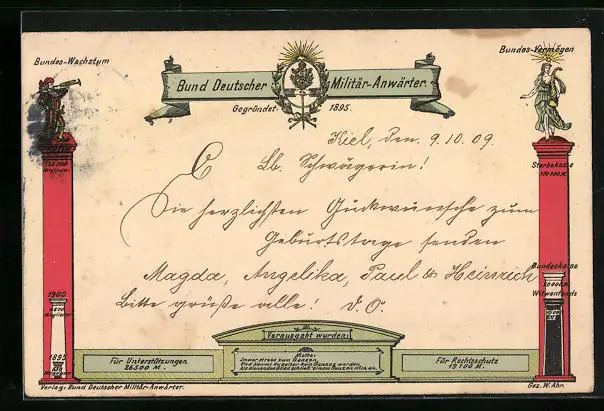 Bundes-Wachstum
Bundes-Vermögen
Bund Deutscher Militär-Anwärter.
Gegründet 1895.
Kiel, den. 9.10.09.
Lb. Schwägerin!
Die herzlichsten Glückwünsche zum
Geburtstage senden
Magda, Angelika, Paul & Heinrich
Bitte grüße alle! D. O.
Mitglieder
1900
Mitglieder
1895
Sterbekasse
Bundeskasse
Witwenfonds
Verausgabt wurden:
Für Unterstützungen
26500 M.
Motto:
Immer strebe zum Ganzen,
Und kannst du selber kein Ganzes werden,
Als dienendes Glied schließ' einem Ganzen dich an.
Für Rechtsschutz
19100 M.
Verlag: Bund Deutscher Militär-Anwärter.
Gez. W. Ahr.